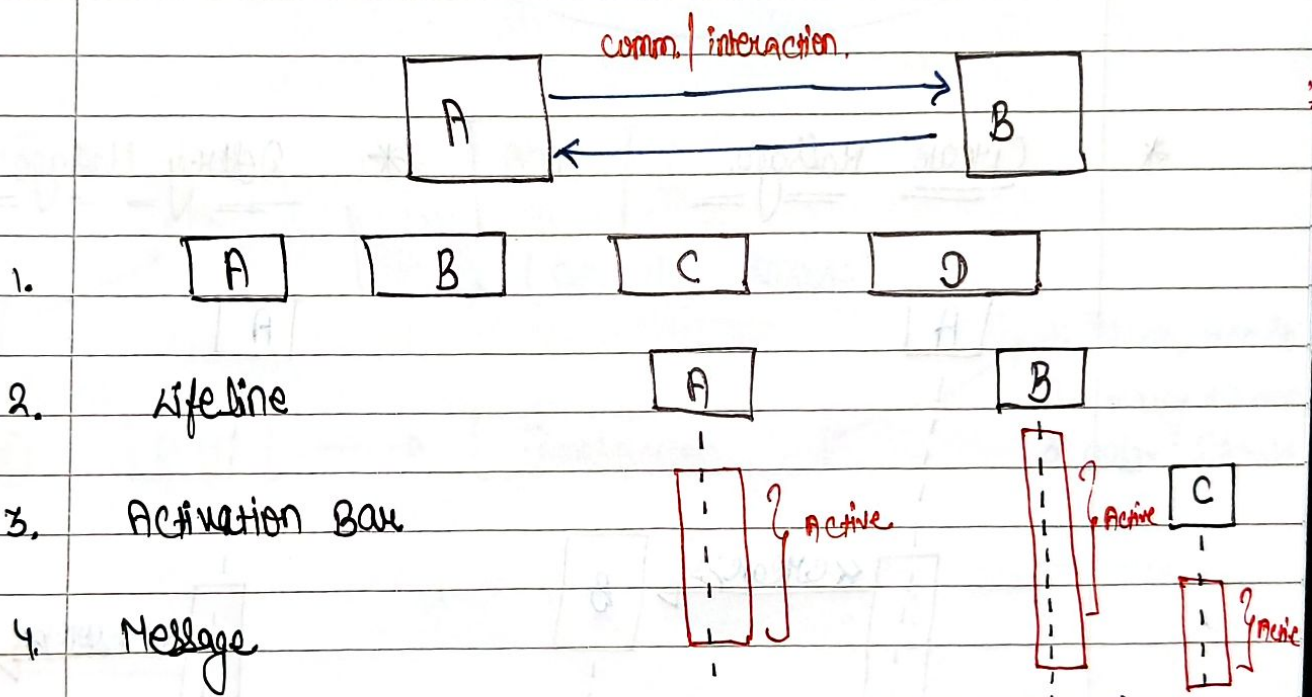 comm. / interaction.
A B
1. A B C D
2. Lifeline A B
3. Activation Bar Active Active C
4. Message Active